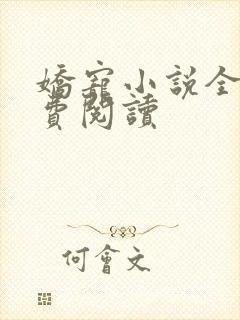 嬌寵小說全
費閱讀
何會文